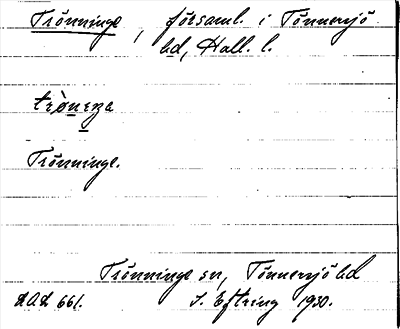 Trönninge, församl. i Tönnersjö
hd, Hall. l.
Trönninge.
Trönninge sn, Tönnersjö hd
LAL 661. S. Eftring 1930.